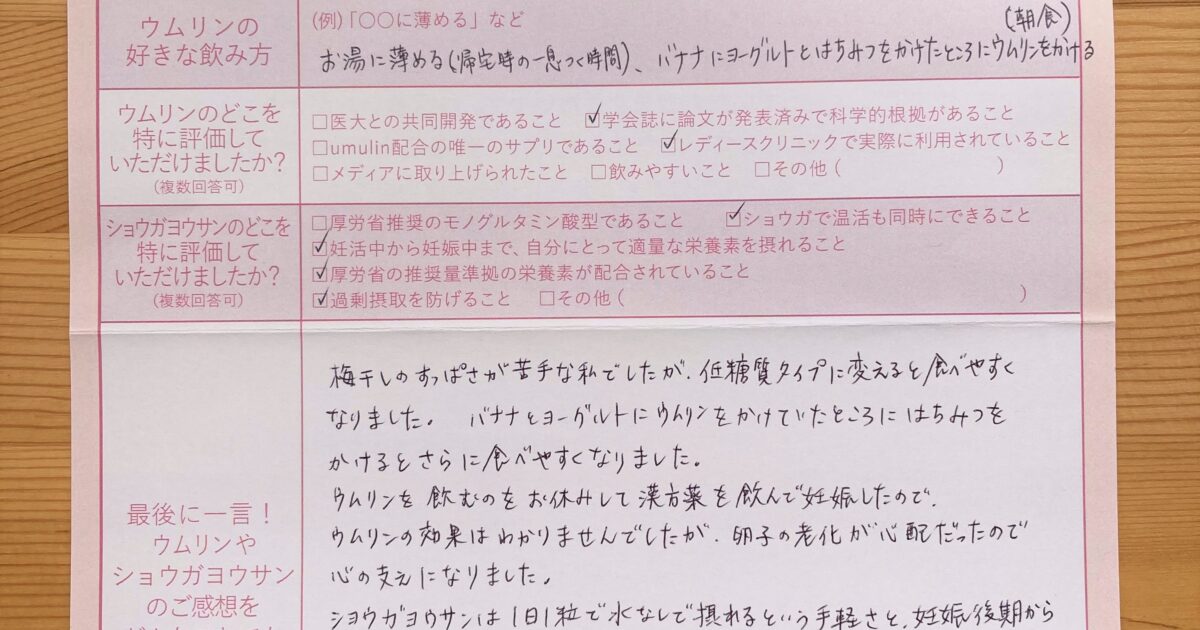 ウムリンの
好きな飲み方
(例)「〇〇に薄める」など
(朝食)
お湯に薄める(帰宅時の一息つく時間)、バナナにヨーグルトとはちみつをかけたところにウムリンをかける
ウムリンのどこを
特に評価して
いただけましたか?
(複数回答可)
□医大との共同開発であること ☑学会誌に論文が発表済みで科学的根拠があること
□umulin配合の唯一のサプリであること ☑レディースクリニックで実際に利用されていること
□メディアに取り上げられたこと □飲みやすいこと □その他( )
ショウガヨウサンのどこを
特に評価して
いただけましたか?
(複数回答可)
□厚労省推奨のモノグルタミン酸型であること ☑ショウガで温活も同時にできること
☑妊活中から妊娠中まで、自分にとって適量な栄養素を摂れること
☑厚労省の推奨量準拠の栄養素が配合されていること
☑過剰摂取を防げること □その他( )
最後に一言!
ウムリンや
ショウガヨウサン
のご感想を
梅干しのすっぱさが苦手な私でしたが、低糖質タイプに変えると食べやすく
なりました。 バナナとヨーグルトにウムリンをかけていたところにはちみつを
かけるとさらに食べやすくなりました。
ウムリンを飲むのをお休みして漢方薬を飲んで妊娠したので、
ウムリンの効果はわかりませんでしたが、卵子の老化が心配だったので
心の支えになりました。
ショウガヨウサンは1日1粒で水なしで摂れるという手軽さと、妊娠後期から